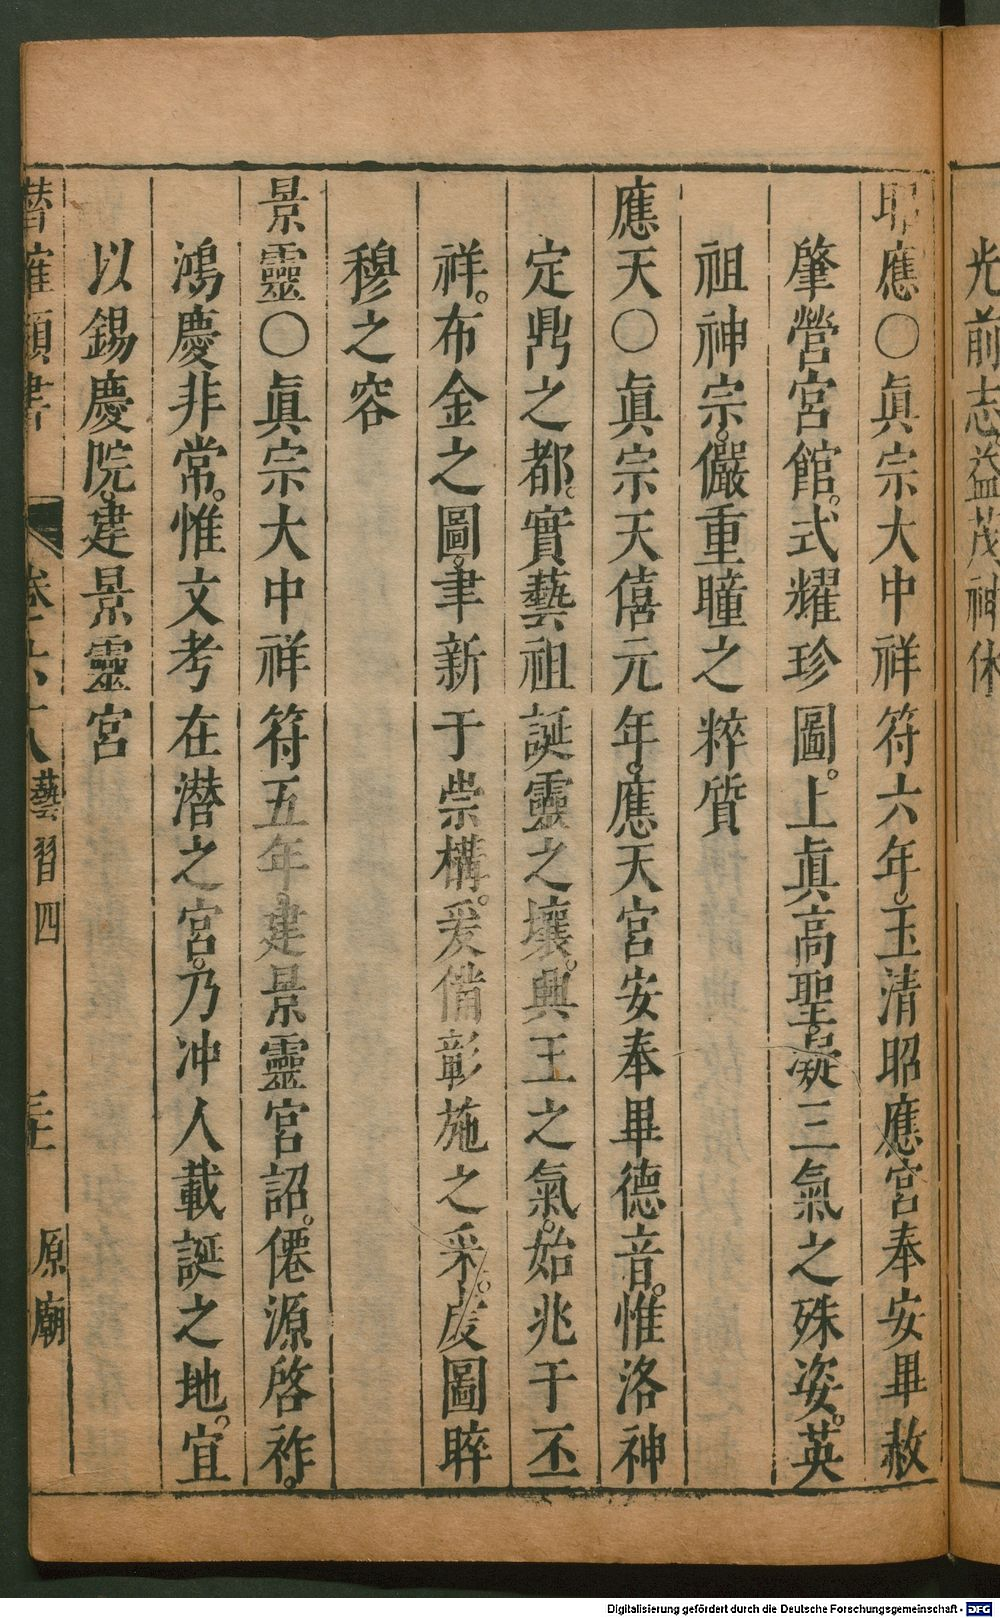 光前志益茂神休
昭應○眞宗大中祥符六年。玉清昭應宮奉安畢赦
肇營宮館。式耀珍圖。上眞高聖。凝三氣之殊姿。英
祖神宗。儼重瞳之粹質
應天○眞宗天僖元年。應天宮安奉畢德音。惟洛神
定鼎之都。實藝祖誕靈之壤。興王之氣。始兆于丕
祥。布金之圖。聿新于崇構。爰僃彰施之采。虔圖睟
穆之容
景靈○眞宗大中祥符五年建景靈宮詔。僊源啓祚。
鴻慶非常。惟文考在潜之宮。乃冲人載誕之地。宜
以錫慶院。建景靈宮
潛確類書 卷 藝習四 原廟
Digitalisierung gefördert durch die Deutsche Forschungsgemeinschaft - DFG